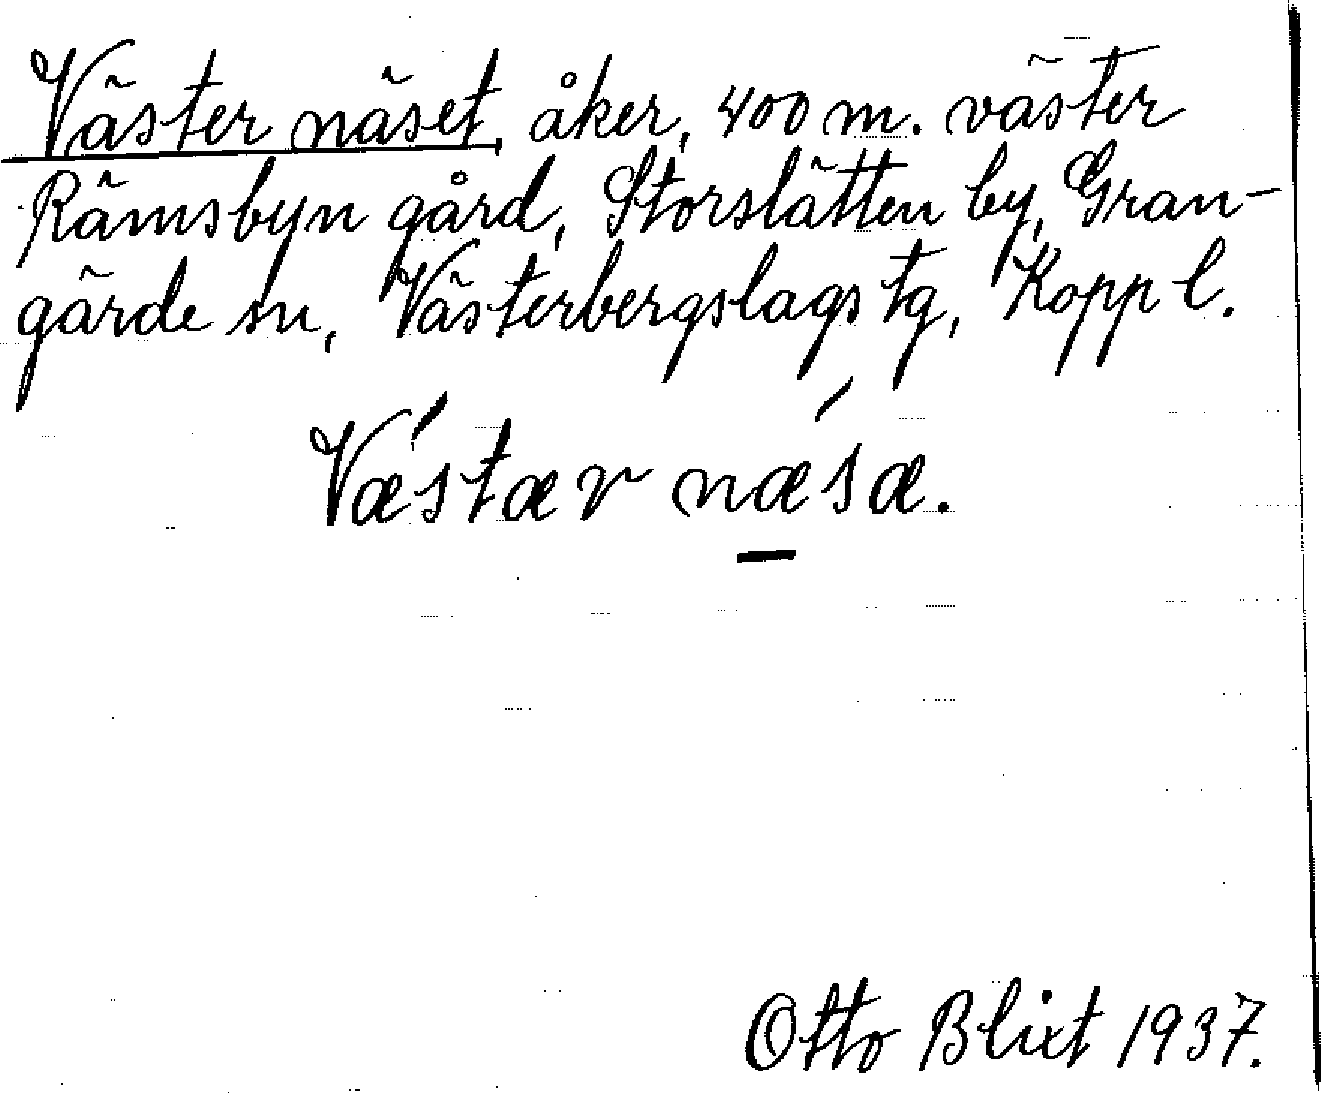 Väster näset, åker, 400 m. väster
Rämsbyn gård, Storslätten by, Gran-
gärde sn, Västerbergslags tg, Kopp l.
Vǽstær næsǽ.
Otto Blixt 1937.